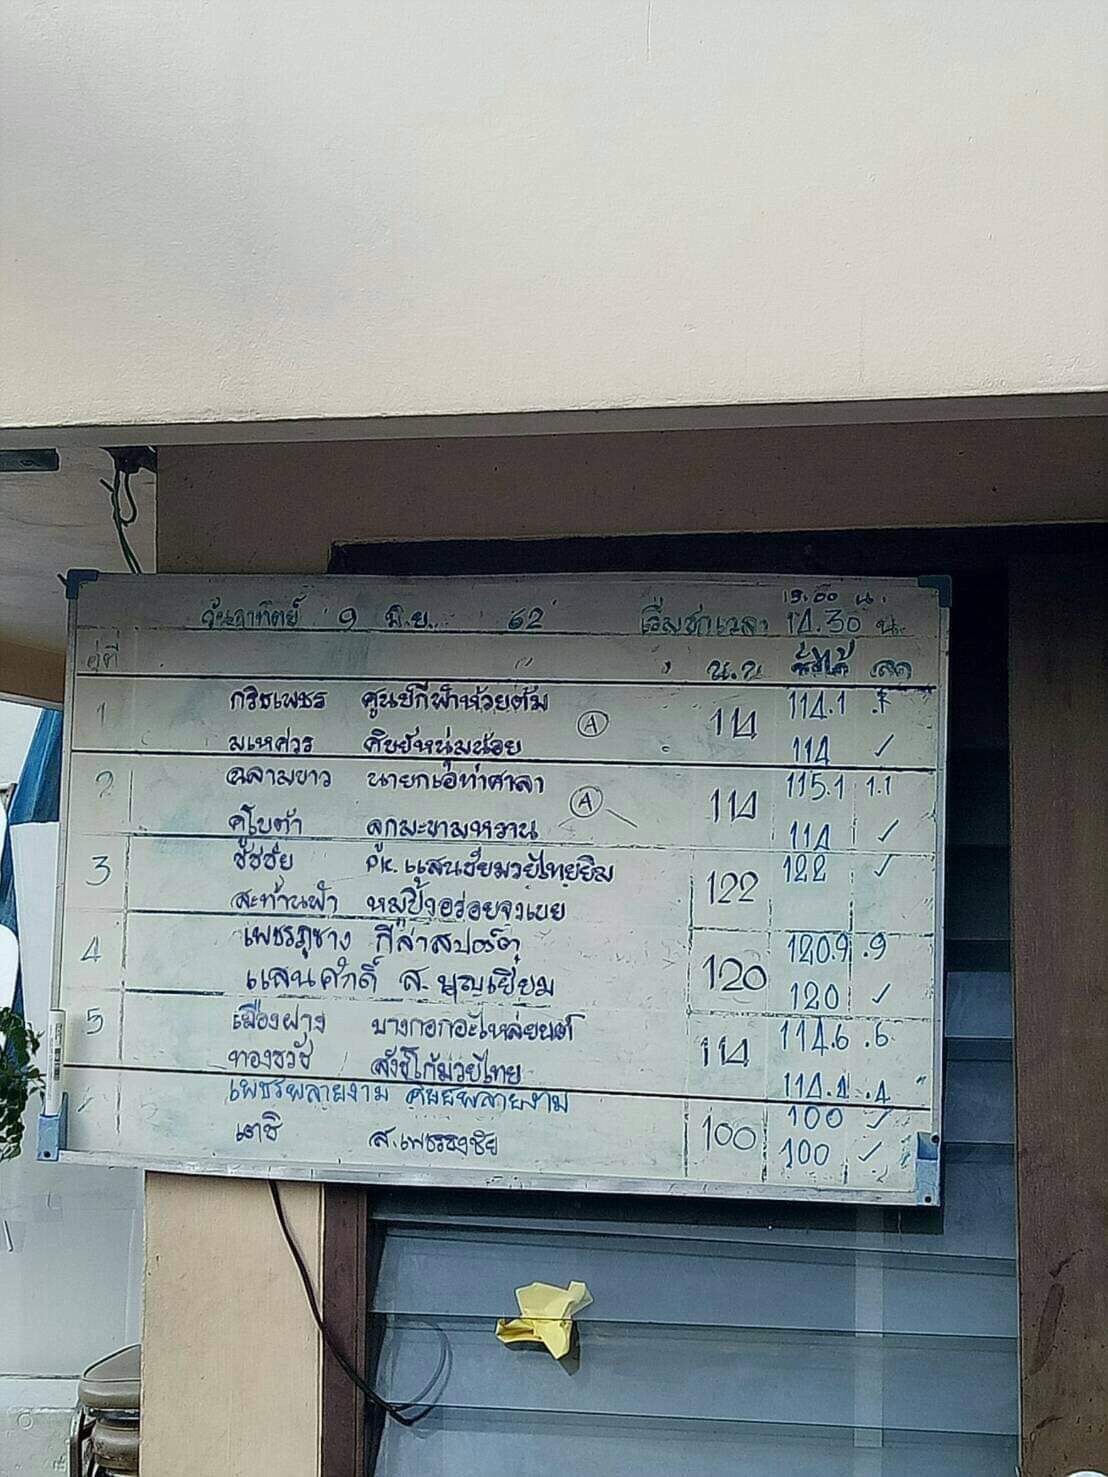 15.00 น.
วันอาทิตย์ 9 มิ.ย. 62 เริ่มชกเวลา 14.30 น.
คู่ที่ น.น ชั่งได้ ลด
1 กริชเพชร ศูนย์กีฬาห้วยต้ม 114 114.1 .1
มเหศวร ศิษย์หนุ่มน้อย A 114 ✓
2 ฉลามขาว นายกเอท่าศาลา 114 115.1 1.1
คูโบต้า ลูกมะขามหวาน A 114 ✓
3 ชัชชัย PK. แสนชัยมวยไทยยิม 122 122 ✓
สะท้านฟ้า หมูปิ้งอร่อยจังเบย
4 เพชรภูซาง กีล่าสปอร์ต 120 120.9 .9
แสนศักดิ์ ส. บุญเยี่ยม 120 ✓
5 เมืองฝาง บางกอกอะไหล่ยนต์ 114 114.6 .6
ทองธวัช สังข์โก้มวยไทย 114.4 .4
เพชรพลายงาม ศิษย์พลายงาม 100 100 ✓
เตชิ ส.เพชรธงชัย 100 ✓